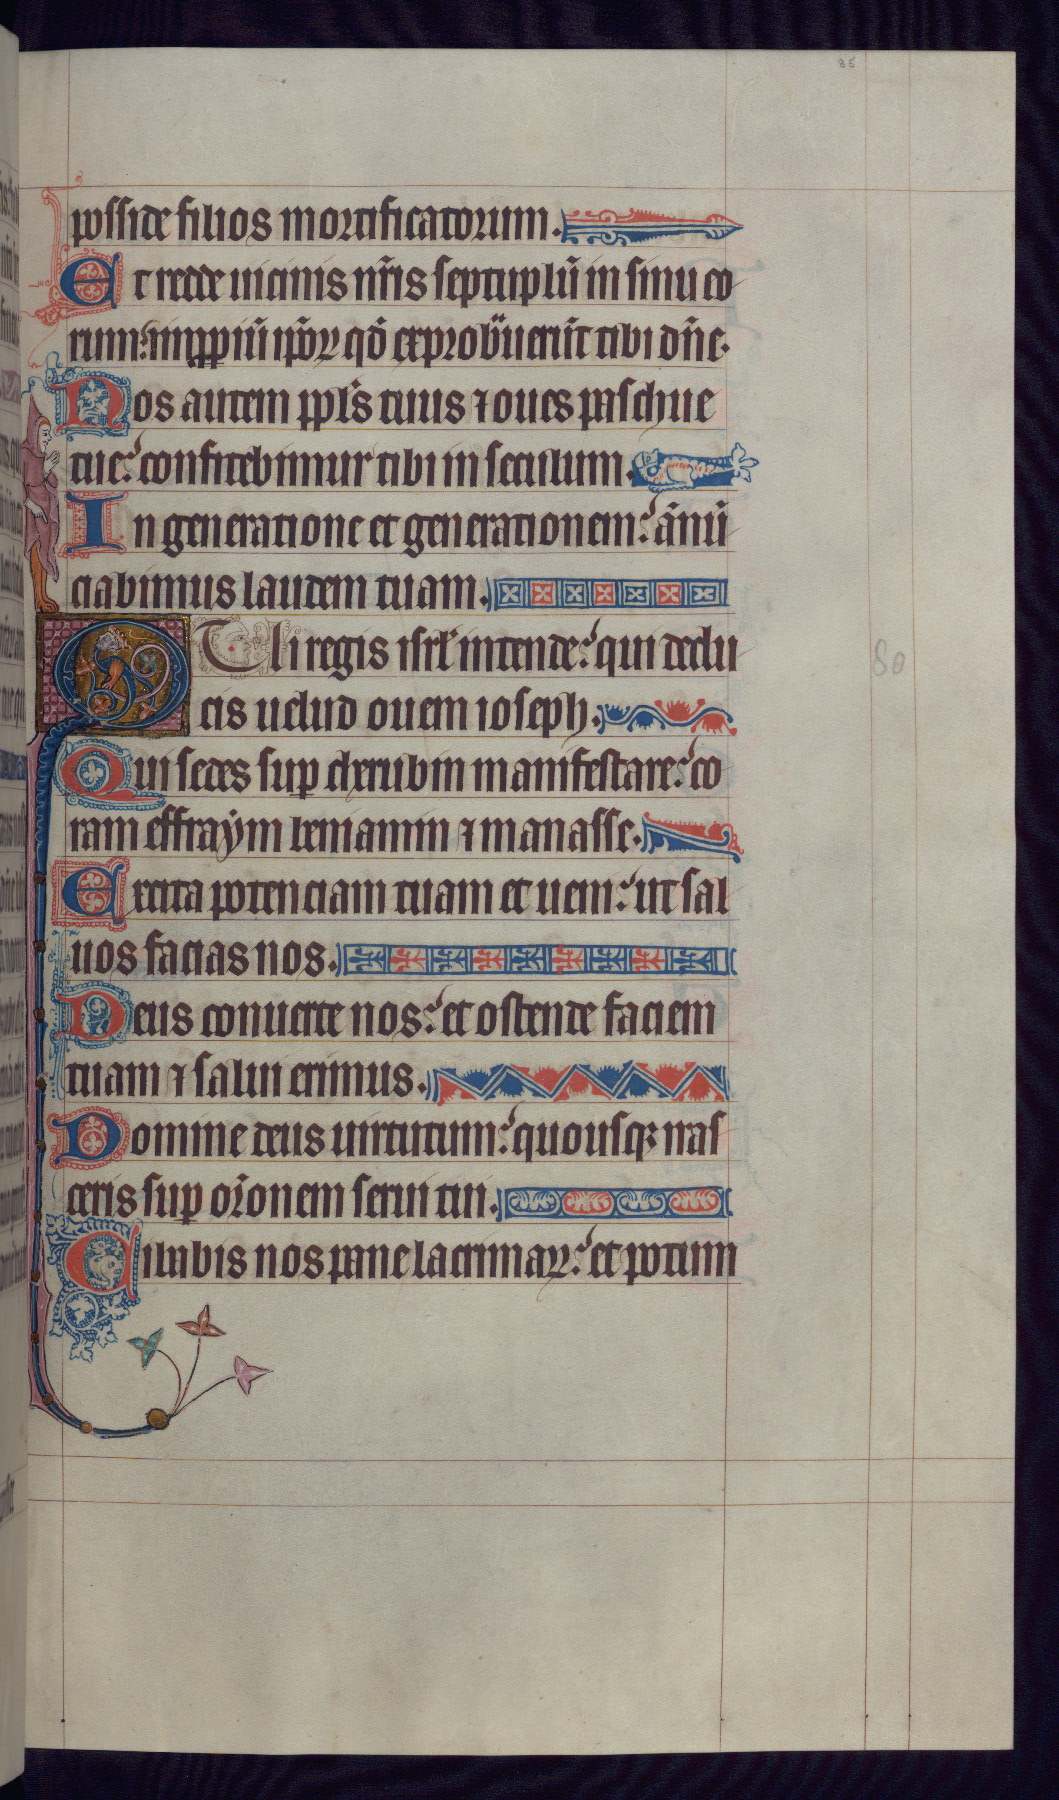 85
posside filios mortificatorum.
Et redde uicinis nr̄is septuplū in sinu eo
rum: inpp̄iū ip̄oꝝ qd̄ exprobͣuerūt tibi dn̄e.
Nos autem ppl̄s tuus ⁊ oues paschue
tue: confitebimur tibi in seculum.
In generatione et generationem: ānū
ciabimus laudem tuam.
Qui regis isrl̄ intende: qui dedu
cis uelud ouem ioseph.
Qui sedes suꝑ cherubin manifestare: co
ram effraẏm beniamin ⁊ manasse.
Excita potenciam tuam et ueni: ut sal
uos facias nos.
Deus conuerte nos: et ostende faciem
tuam ⁊ salui erimus.
Domine deus uirtutum: quousqꝫ iras
ceris suꝑ or̄onem serui tui.
Cibabis nos pane lacrimaꝝ: et potum
80